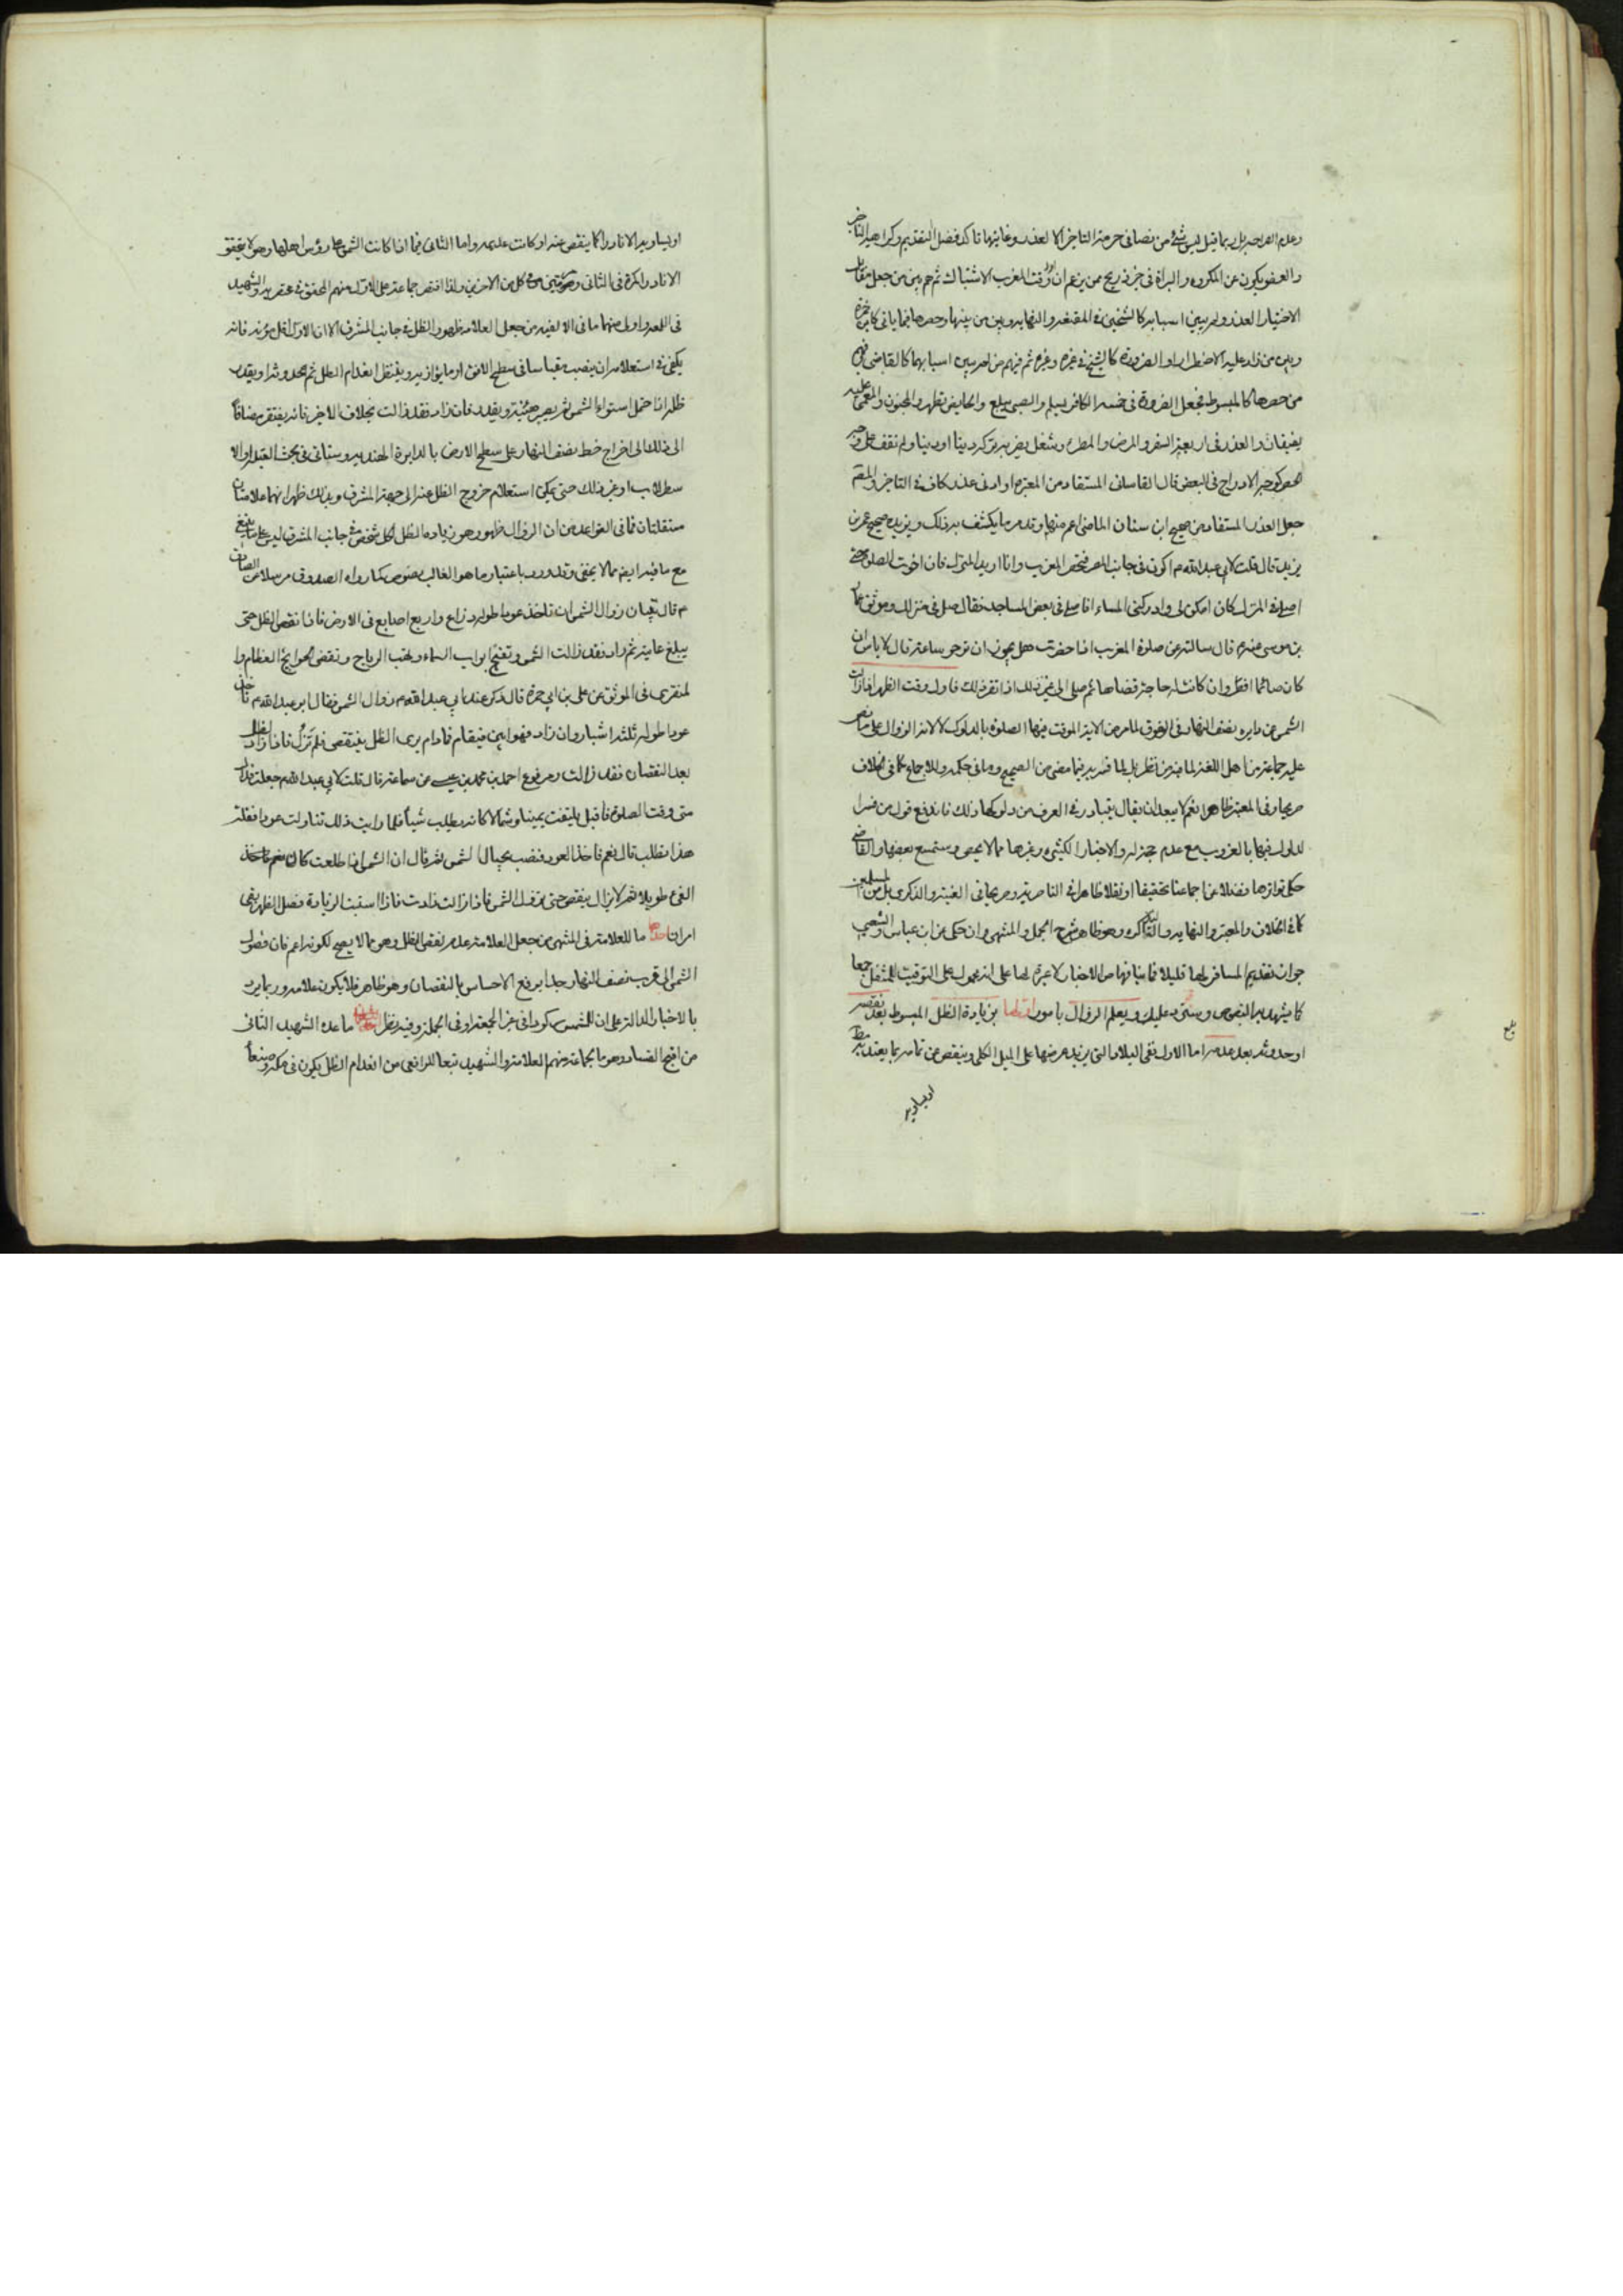 وعدم الصراحة بل ربما قيل ليس شئ من نصا في حرمة التاخير الا لعذر وغايتها تاكد فضل التقديم وكراهية التاخير
والعفو يكون عن المكروه والبراة في خبر ربح ممن يزعم ان وقت المغرب الاشتباك ثم هم بين من جعل مقابل
الاختيار العذر ولم يبين اسبابه كالشيخين في المقنعة والنهاية وبين من بينها وحصرها فيما ياتي كابن حمزة
وبين من زاد عليه الاضطرار او الضرورة كالشيخ في غيره وغيره ثم فيهم من لم يبين اسبابهما كالقاضي وفيهم
من حصرها كالمبسوط فجعل الضرورة في خمسة الكافر يسلم والصبي يبلغ والحايض تطهر والمجنون والمغمى عليه
يفيقان والعذر في اربعة السفر والمرض والمطر وشغل يضر به تركه دينا او دنيا ولم نقف على وجه
الادراج في البعض قال القاساني المستفاد من المعتبرة او ادنى عذر كاف في التاخير والمقم
جعل العذر المستفاد من صحيح ابن سنان الماضي اعم منها وقد مر ما يكشف به ذلك ويزيده صحيح عمر بن
يزيد قال قلت لابي عبد الله م اكون في جانب المصر فتحضر المغرب وانا اريد المنزل فان اخرت الصلوة حتى
اصلي في المنزل كان امكن لي وادركني المساء افاصلي في بعض المساجد فقال صل في منزلك وموثق عمار
بن موسى عنه م قال سالته عن صلوة المغرب اذا حضرت هل يجوز ان تؤخر ساعة قال لا باس ان
كان صائما افطر وان كانت له حاجة قضاها ثم صلى الى غير ذلك اذا تقرر ذلك فاول وقت الظهر اذا زالت
الشمس عن دايره نصف النهار في الفوق لما مر من الاية الموقت فيها الصلوة بالدلوك لانه الزوال على ما نص
عليه جماعة من اهل اللغة لما فيه من نظر بل لما فسر به فيما مضى من الصحيح وما في حكمه وللاجماع كما في الخلاف
صريحا وفي المعتبر ظاهرا نعم لا يبعد ان يقال يتبادر في العرف من دلوكها ذلك فاندفع قول من فسر ا
لدلوك فيها بالغروب مع عدم حجة له والاخبار الكثيرة وغيرها مما لا يحصى وستسمع بعضها والقاضي
حكى تواترها وفضلا عن اجماعنا تحقيقا او نقلا ظاهرا في الناصرية وصريحا في الغنية والذكرى بل من المسلمين
كما في الخلاف والمعتبر والنهاية والتذكرة وهو ظاهر شرح الجمل والمنتهى وان حكى عن ابن عباس والشعبي
جواز تقديم المسافر لها قليلا فما ينافها من الاخبار لا عبرة لها على انه محمول على التوقيت للمتنفل جمعا
كما يشهد به النصوص وستمر عليك ويعلم الزوال بامور اولها بزيادة الظل المبسوط بعد نقصه
او حدوثه بعد عدمه اما الاول ففي البلاد التي يزيد عرضها على الميل الكلي وينقص عن تمامه بما يعتد به
او يساويه
بلغ
او يساويه الا نادرا كما ينقص عنه او كانت عليه واما الثاني فما اذا كانت الشمس على رؤس اهلها وهو لا يتحقق
الا نادر المرة في الثاني ومرتين في كل من الاخرين ولذا اقتصر جماعة على الاول منهم المحقق في مختصريه والشهيد
في اللمعة واولى منهما ما في الالفيه من جعل العلامة ظهور الظل في جانب المشرق الا ان الاول اقل مؤنة فانه
يكفي في استعلامه ان ينصب مقياسا في سطح الافق او ما يوازيه وينتظر انعدام الظل ثم حدوثه او يقدر
ظله اذا خمن استواء الشمس ثم يصبر هنيئة ويقدر فان زاد فقد زالت بخلاف الاخير فانه يفتقر مضافا
الى ذلك الى اخراج خط نصف النهار على سطح الارض بالدايرة الهندية وستاتي في بحث القبلة او الا
سطرلاب او غير ذلك حتى يمكن استعلام خروج الظل عنه الى جهة المشرق وبذلك ظهر انهما علامتان
مستقلتان فما في القواعد من ان الزوال ظهور وهو زيادة الظل لكل شخص في جانب المشرق ليس على ما ينبغي
مع ما فيه ايضا مما لا يخفى وقد ورد باعتبار ما هو الغالب نصوص كما رواه الصدوق مرسلا عن الصادق
م قال تبيان زوال الشمس ان تاخذ عودا طوله ذراع واربع اصابع في الارض فاذا نقص الظل حتى
يبلغ غايته ثم زاد فقد زالت الشمس وتفتح ابواب السماء وتهب الرياح وتقضى الحوايج العظام وا
لمنقرى في الموثق عن علي بن ابي حمزة قال ذكر عند ابي عبد الله م زوال الشمس فقال ابو عبد الله م تاخذ
عودا طوله ثلثة اشبار وان زاد فهو ابين فيقام فما دام يرى الظل ينقص فلم تزل فاذا زاد الظل
بعد النقصان فقد زالت ومرفوع احمد بن محمد بن عيسى عن سماعة قال قلت لابي عبد الله م جعلت فداك
متى وقت الصلوة فاقبل يلتفت يمينا وشمالا كانه يطلب شيأ فلما رايت ذلك تناولت عودا فقلت
هذا تطلب قال نعم فاخذ العود فنصب بحيال الشمس ثم قال ان الشمس اذا طلعت كان
الفئ طويلا ثم لا يزال ينقص حتى تزول الشمس فاذا زالت زادت فاذا استبنت الزيادة فصل الظهر بقي
امران احدهما ما للعلامة في المنتهى من جعل العلامة عدم نقص الظل وهو مما لا يصح لكونه اعم فان وصول
الشمس الى قرب نصف النهار جدا يرفع الاحساس بالنقصان وهو ظاهر فلا يكون علامة وربما يرد
بالاخبار الدالة على ان للشمس ركودا في غير الجمعة او في الجملة وفيه نظر ما عده الشهيد الثاني
من اقبح الفساد وهو ما لجماعة منهم العلامة والشهيد تبعا للرافعي من انعدام الظل يكون في مكة وصنعا